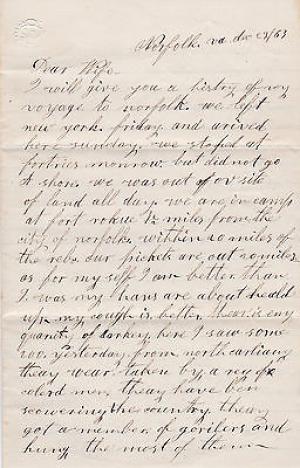 Norfolk. va. dec 27/63
Dear Wife
I will give you a histry of my
voyage to norfolk. we left
new york. friday. and arived
here sunday. we stoped at
fortries monrow. but did not go
a shore. we was out of ov site
of land all day. we are in camp
at fort 1½ miles from the
city of norfolk. withtin 20 miles of
the rebs. our pickets are out 20 miles
as for my self I am better than
I was my hans are about heald
up. my cough is better. thear is eny
quanty of darkey here I saw some
200. yesterday from north carliany
theay wear taken by a reg of
colerd men, theay have ben
scowering the country. theay
got a number of gorilers and
hung the most of them